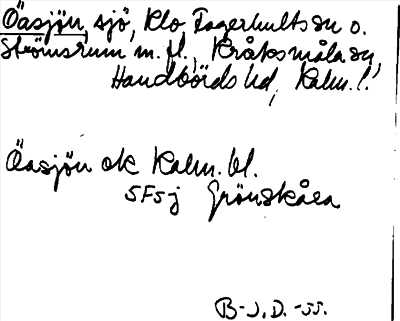 Öasjön, sjö, Klo Fagerhults sn o.
Strömsrum m. fl., Kråksmåla sn,
Handbörds hd, Kalm. l.
Öasjön ek Kalm. bl.
SFSj Grönskåra
B-J.D. -55.